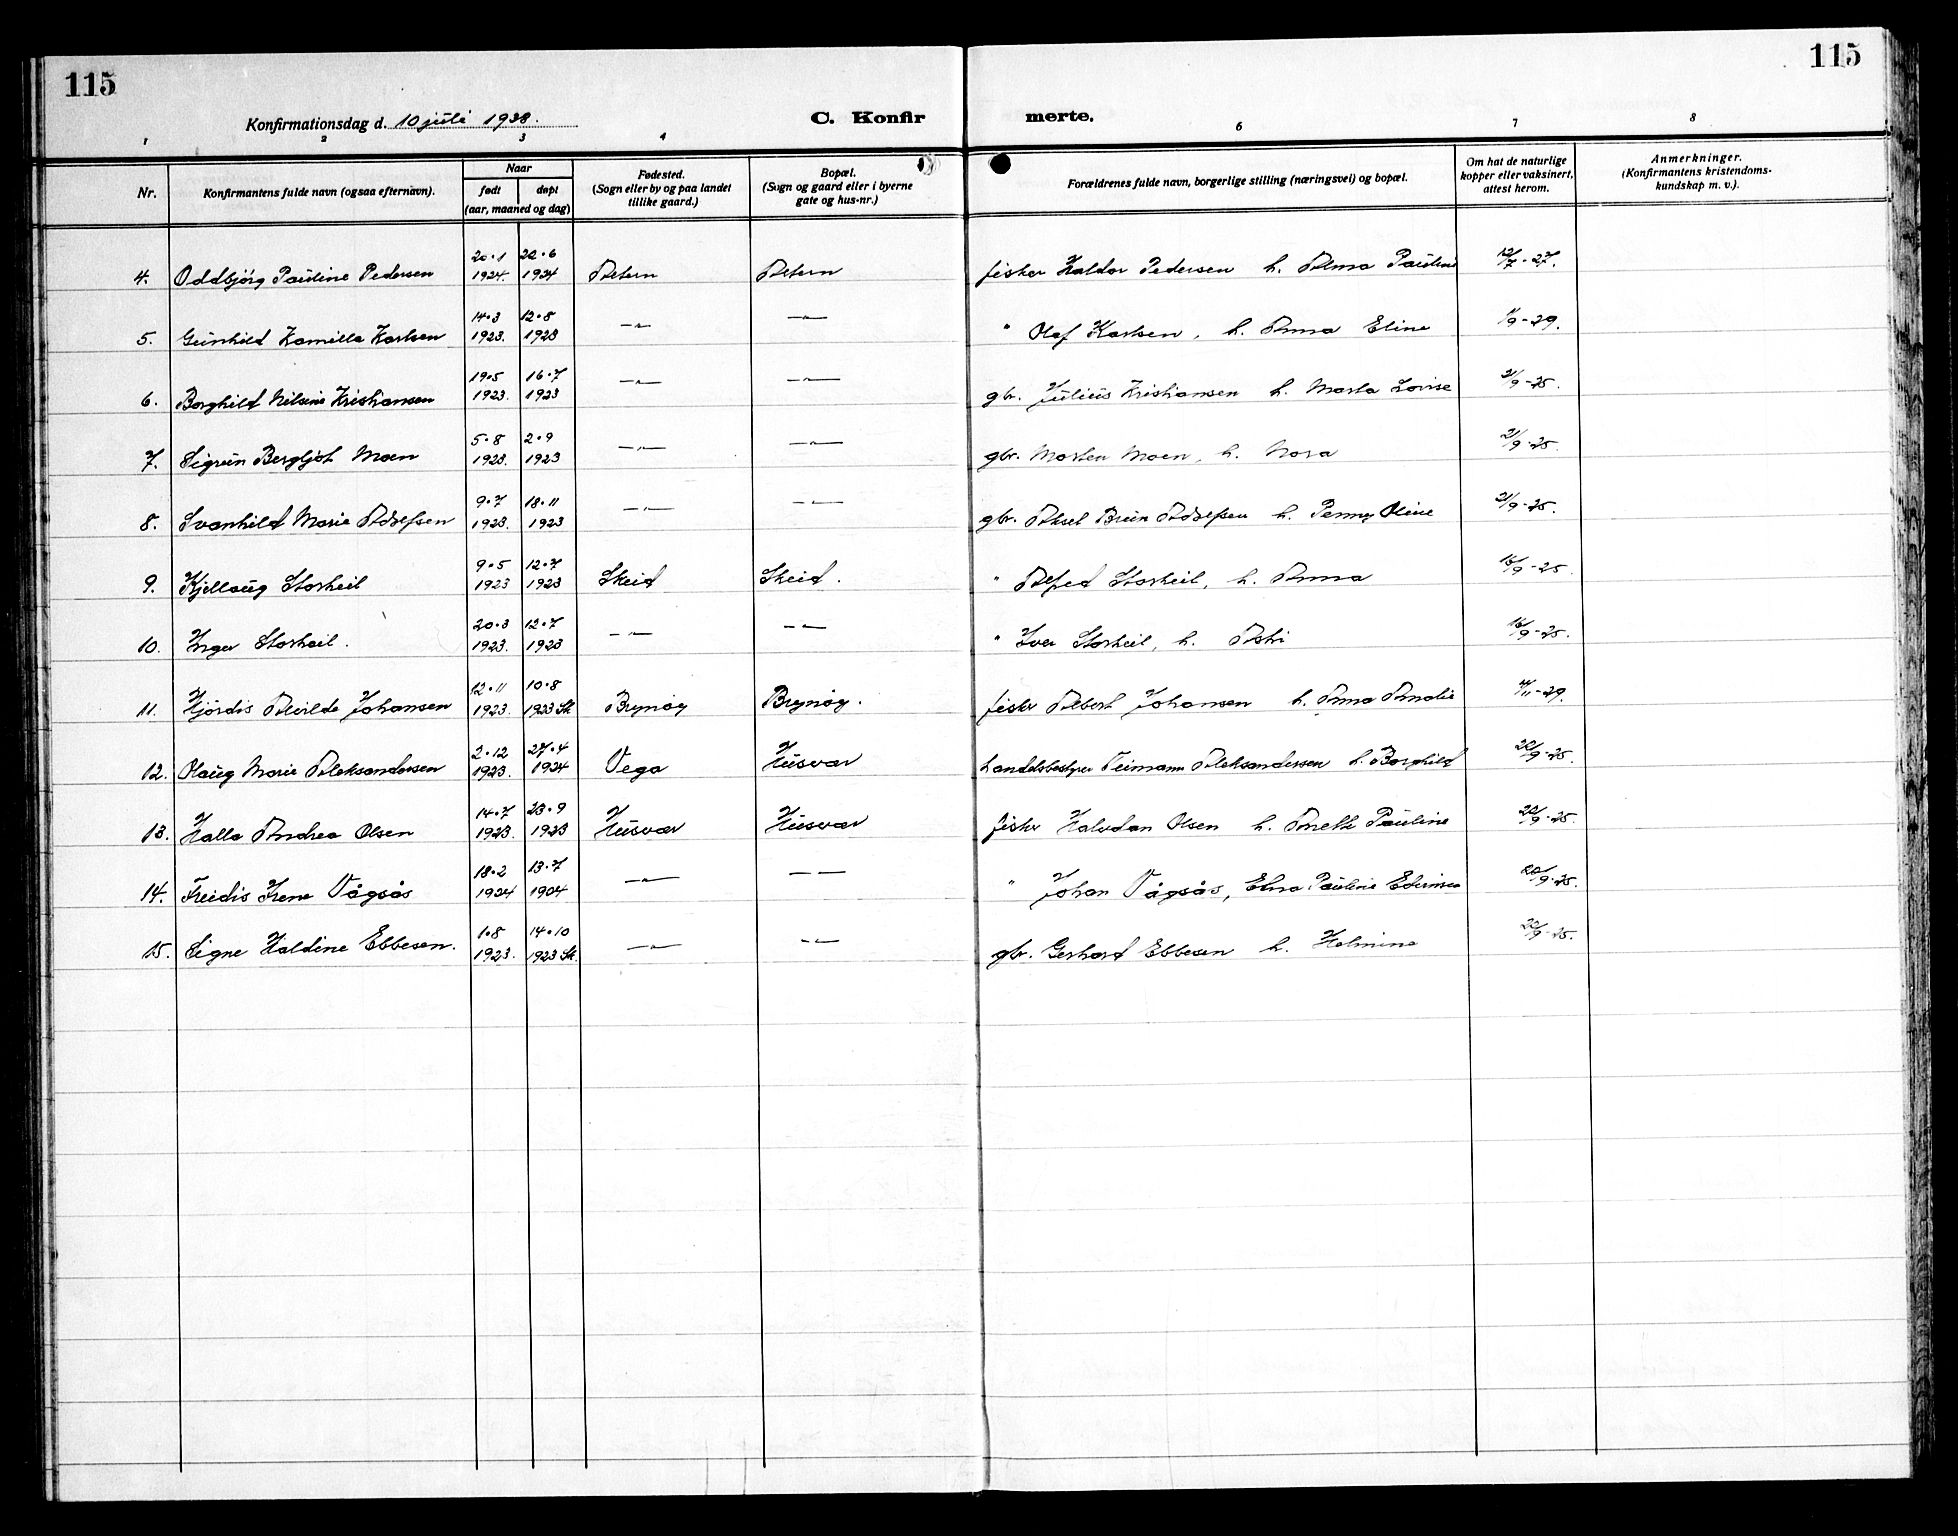 115
115
Konfirmationsdag d. 10 juli 1938.
C. Konfir
merte.
1 2 3 4 6 7 8
Nr.
Konfirmantens fulde navn (ogsaa efternavn).
Naar
født
døpt
(aar, maaned og dag)
Fødested.
(Sogn eller by og paa landet
tillike gaard.)
Bopæl.
(Sogn og gaard eller i byerne
gate og hus-nr.)
Forældrenes fulde navn, borgerlige stilling (næringsvei) og bopæl.
Om hat de naturlige
kopper eller vaksinert,
attest herom.
Anmerkninger.
(Konfirmantens kristendoms-
kundskap m. v.).
20.1 22.6
4. Oddbjörg Pauline Pedersen 1924. 1924 fisker Haldor Pedersen h. Alma Pauline 12/7-27.
14.3 12.8
5. Gunhild Kamilla Karlsen 1923. 1923 —"— —"— " Olaf Karlsen, h. Anna Eline 1/9-29.
19.5 16.7
6. Borghild Nilsine Kristiansen 1923. 1923 —"— —"— gbr. Julius Kristiansen h. Marta Lovise 21/9-25.
5.8 2.9
7. Sigrun Bergljot Moen 1923. 1923 —"— —"— gbr. Morten Moen, h. Nora 21/9-25.
9.7 18.11
8. Svanhild Marie Adolfsen 1923. 1923 —"— —"— gbr. Aksel Brun Adolfsen h. Penny Oline 21/9-25.
9.5 12.7
9. Kjellaug Storheil 1923 1923 Skeid Skeid. " Alfred Storheil, h. Anna 16/9-25.
20.3 12.7
10. Inger Storheil. 1923. 1923 —"— —"— " Iver Storheil, h. 16/9-25.
12.11 10.8
11. Hjördis Alvilde Johansen 1923. 1923 Sk Brynöy Brynöy. fisker Albert Johansen h. Anna Amalie 4/11-29.
2.12 27.4
12. Olaug Marie Aleksandersen 1923. 1924 Vega Husvær Handelsbestyrer Teimann Aleksandersen h. Borghild 22/9-25.
14.7 23.9
13. Halla Andrea Olsen 1923. 1923 Husvær Husvær fisker Halvdan Olsen h. Anette Pauline 22/9-25.
18.2 13.7
14. Freidis Irene Vågsås 1924 1904 —"— —"— " Johan Vågsås, Elna Pauline 22/9-25.
1.8 14.10
15. Signe Haldine Ebbesen. 1923. 1923 Sk. —"— —"— gbr. Gerhard Ebbesen h. Helmine 22/9-25.